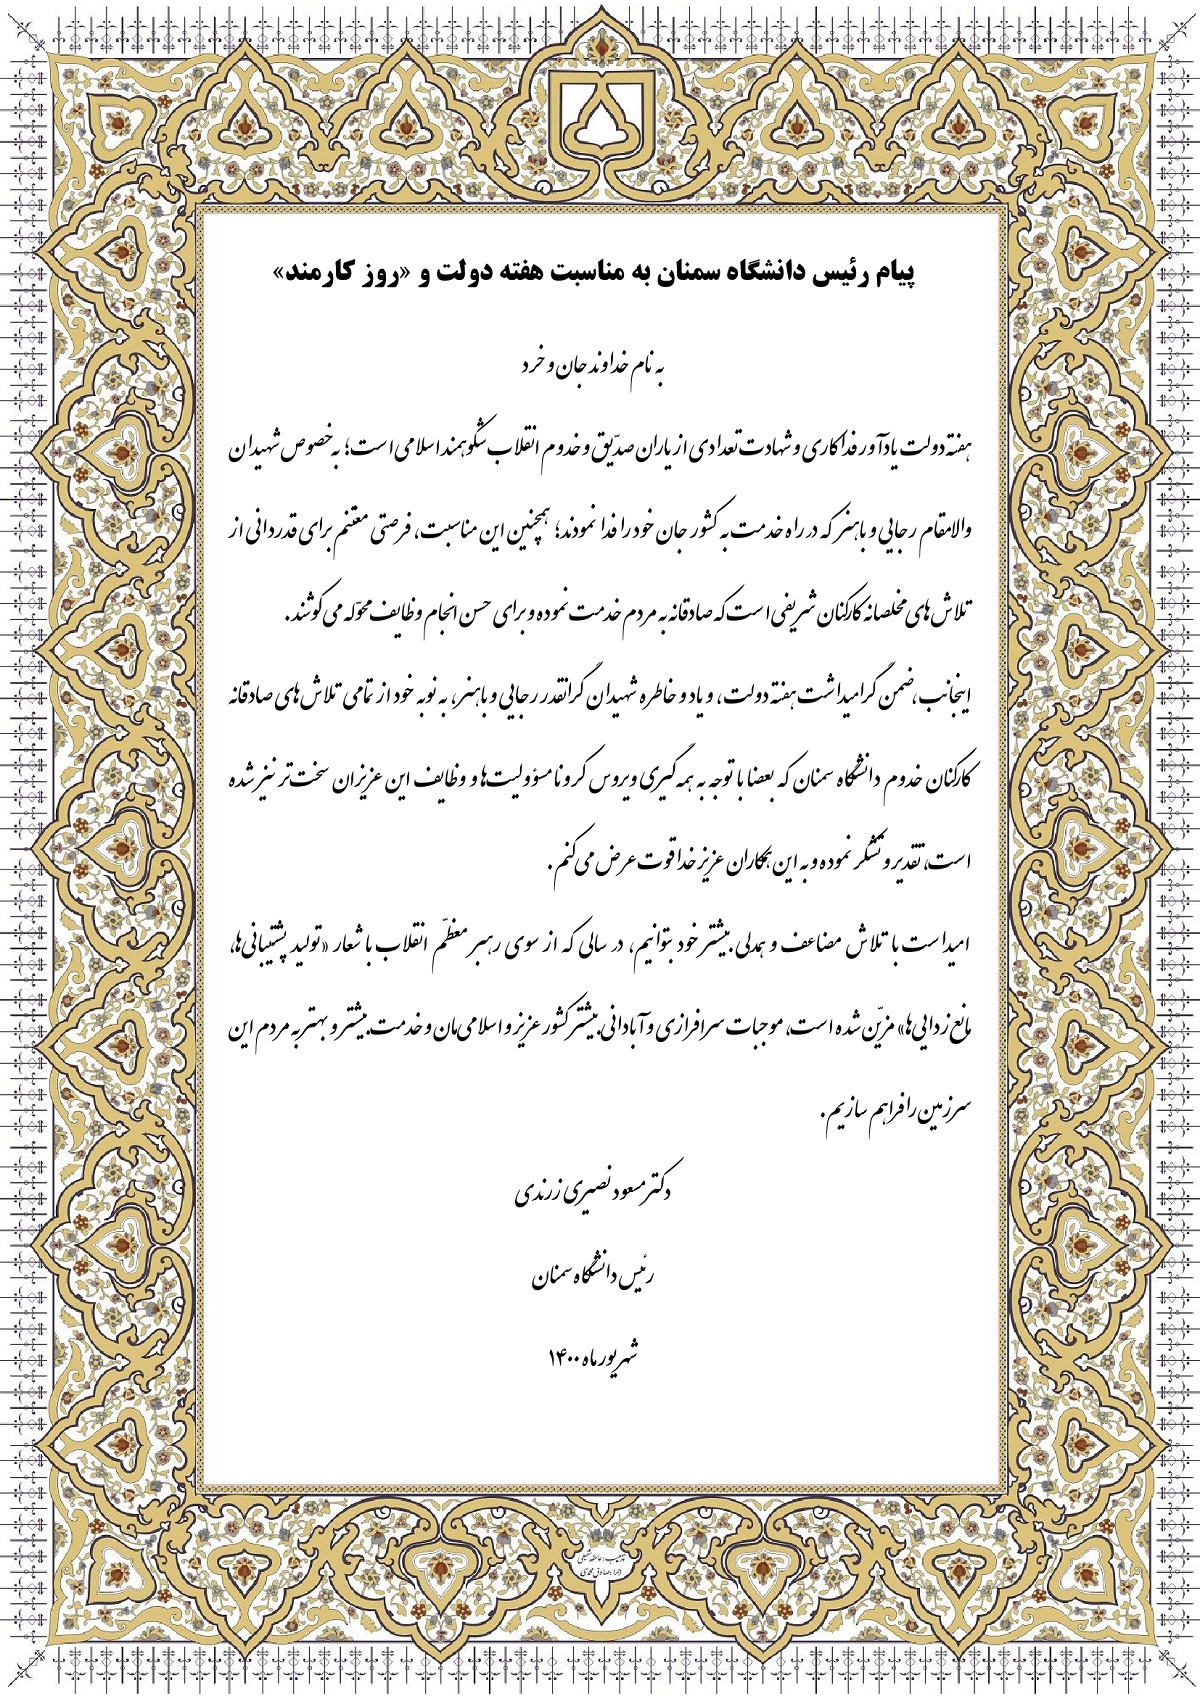 پیام رئیس دانشگاه سمنان به مناسبت هفته دولت و «روز کارمند»
به نام خداوند جان و خرد
هفته دولت یادآور فداکاری و شهادت تعدادی از یاران صدّیق و خدوم انقلاب شکوهمند اسلامی است؛ به خصوص شهیدان
والامقام رجایی و باهنر که در راه خدمت به کشور جان خود را فدا نمودند؛ همچنین این مناسبت، فرصتی مغتنم برای قدردانی از
تلاش‌های مخلصانه کارکنان شریفی است که صادقانه به مردم خدمت نموده و برای حسن انجام وظایف محوّله می‌کوشند.
اینجانب، ضمن گرامیداشت هفته دولت، و یاد و خاطره شهیدان گرانقدر رجایی و باهنر، به نوبه خود از تمامی تلاش‌های صادقانه
کارکنان خدوم دانشگاه سمنان که بعضا با توجه به همه‌گیری ویروس کرونا مسؤولیت‌ها و وظایف این عزیزان سخت‌تر نیز شده
است، تقدیر و تشکر نموده و به این همکاران عزیز خدا قوت عرض می‌کنم.
امید است با تلاش مضاعف و همدلی بیشتر خود بتوانیم، در سالی که از سوی رهبر معظّم انقلاب با شعار «تولید پشتیبانی‌ها،
مانع‌زدایی‌ها» مزیّن شده است، موجبات سرافرازی و آبادانی بیشتر کشور عزیز و اسلامی‌مان و خدمت بیشتر و بهتر به مردم این
سرزمین را فراهم سازیم.
دکتر مسعود نصیری زرندی
رئیس دانشگاه سمنان
شهریور ماه ۱۴۰۰